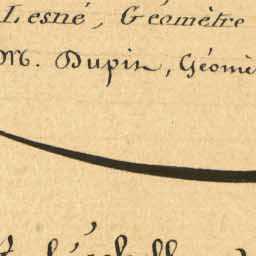 Lesné, Géomètre
M. Dupin, Géomè
l'échelle